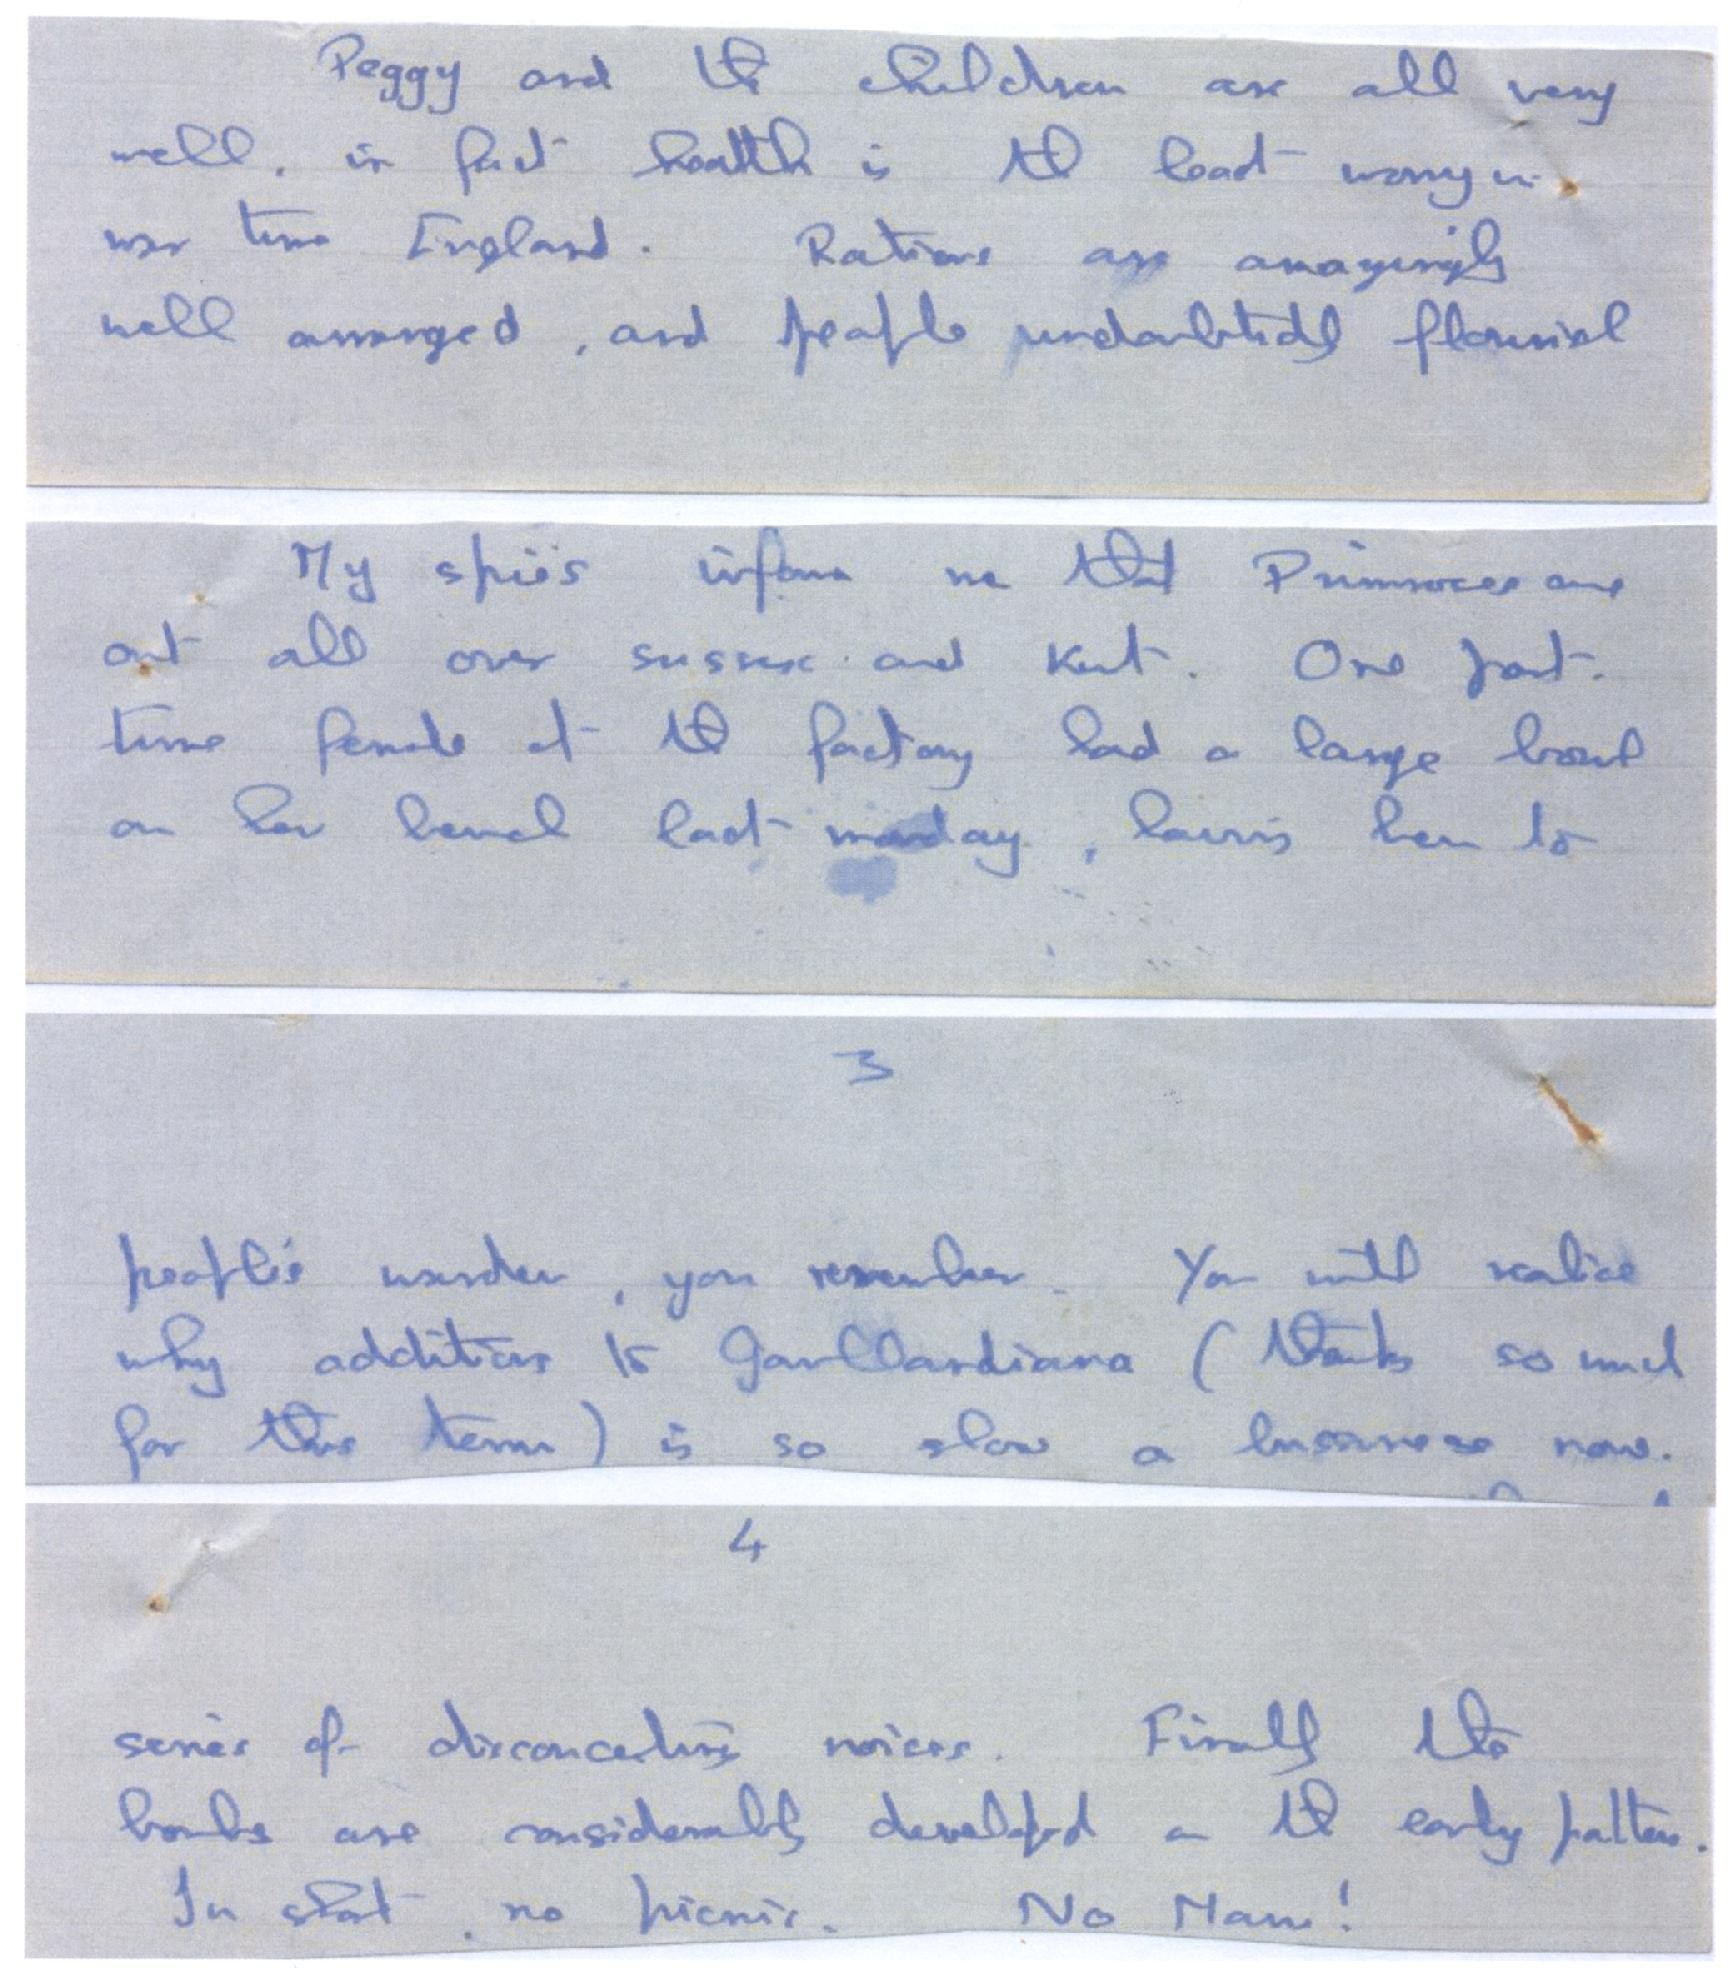 Peggy and the children are all very
well, in fact health is the least worry in
war time England. Rations are amazingly
well arranged, and people undoubtedly flourish
My spies inform me that Primroses are
out all over Sussex and Kent. One part-
time female at the factory had a large bowl
on her bench last monday, having been to
3
people's murder, you remember. You will realise
why additions to Gaillardiana (thanks so much
for this term) is so slow a business now.
4
series of disconcerting noises. Finally the
bombs are considerably developed on the early pattern.
In short, no picnic. No Mam!